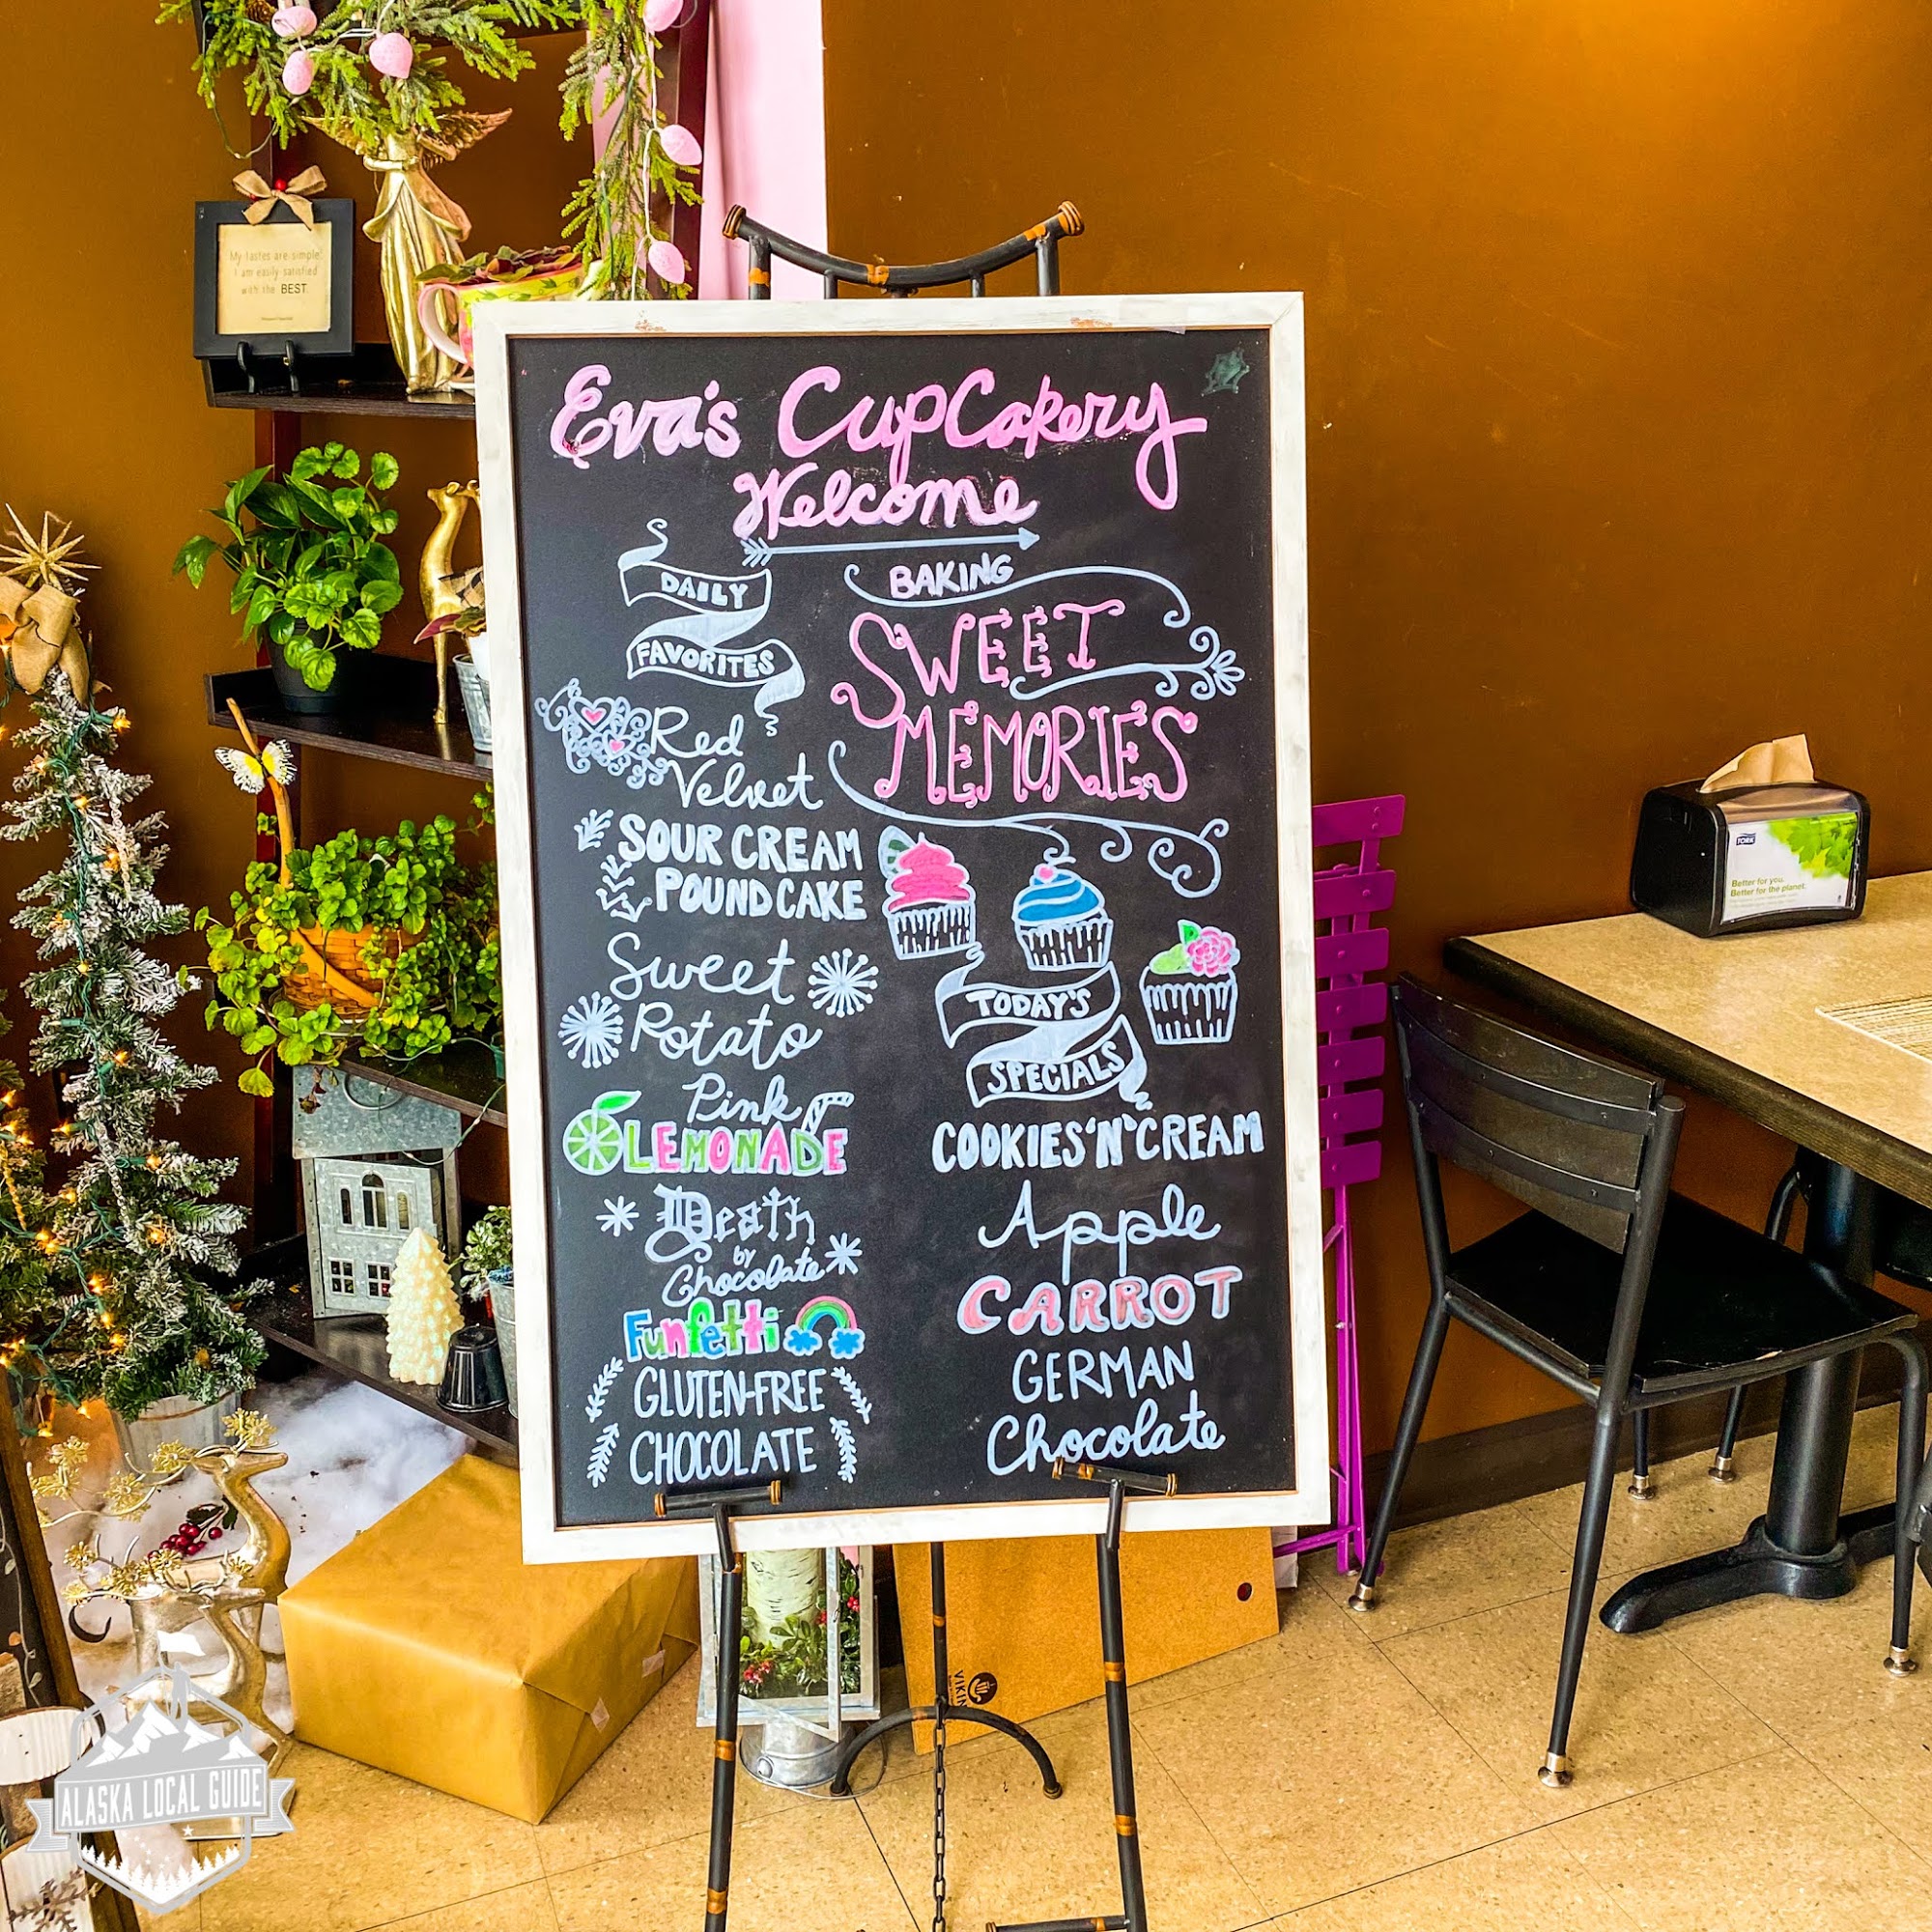 My tastes are simple:
I am easily satisfied
with the BEST.
Eva's CupCakery
Welcome
DAILY
FAVORITES
Red
Velvet
SOUR CREAM
POUND CAKE
Sweet
Potato
Pink
LEMONADE
Death
by
Chocolate
Funfetti
GLUTEN-FREE
CHOCOLATE
BAKING
SWEET
MEMORIES
TODAY'S
SPECIALS
COOKIES 'N' CREAM
Apple
CARROT
GERMAN
Chocolate
TORK
Better for you.
Better for the planet.
ALASKA LOCAL GUIDE